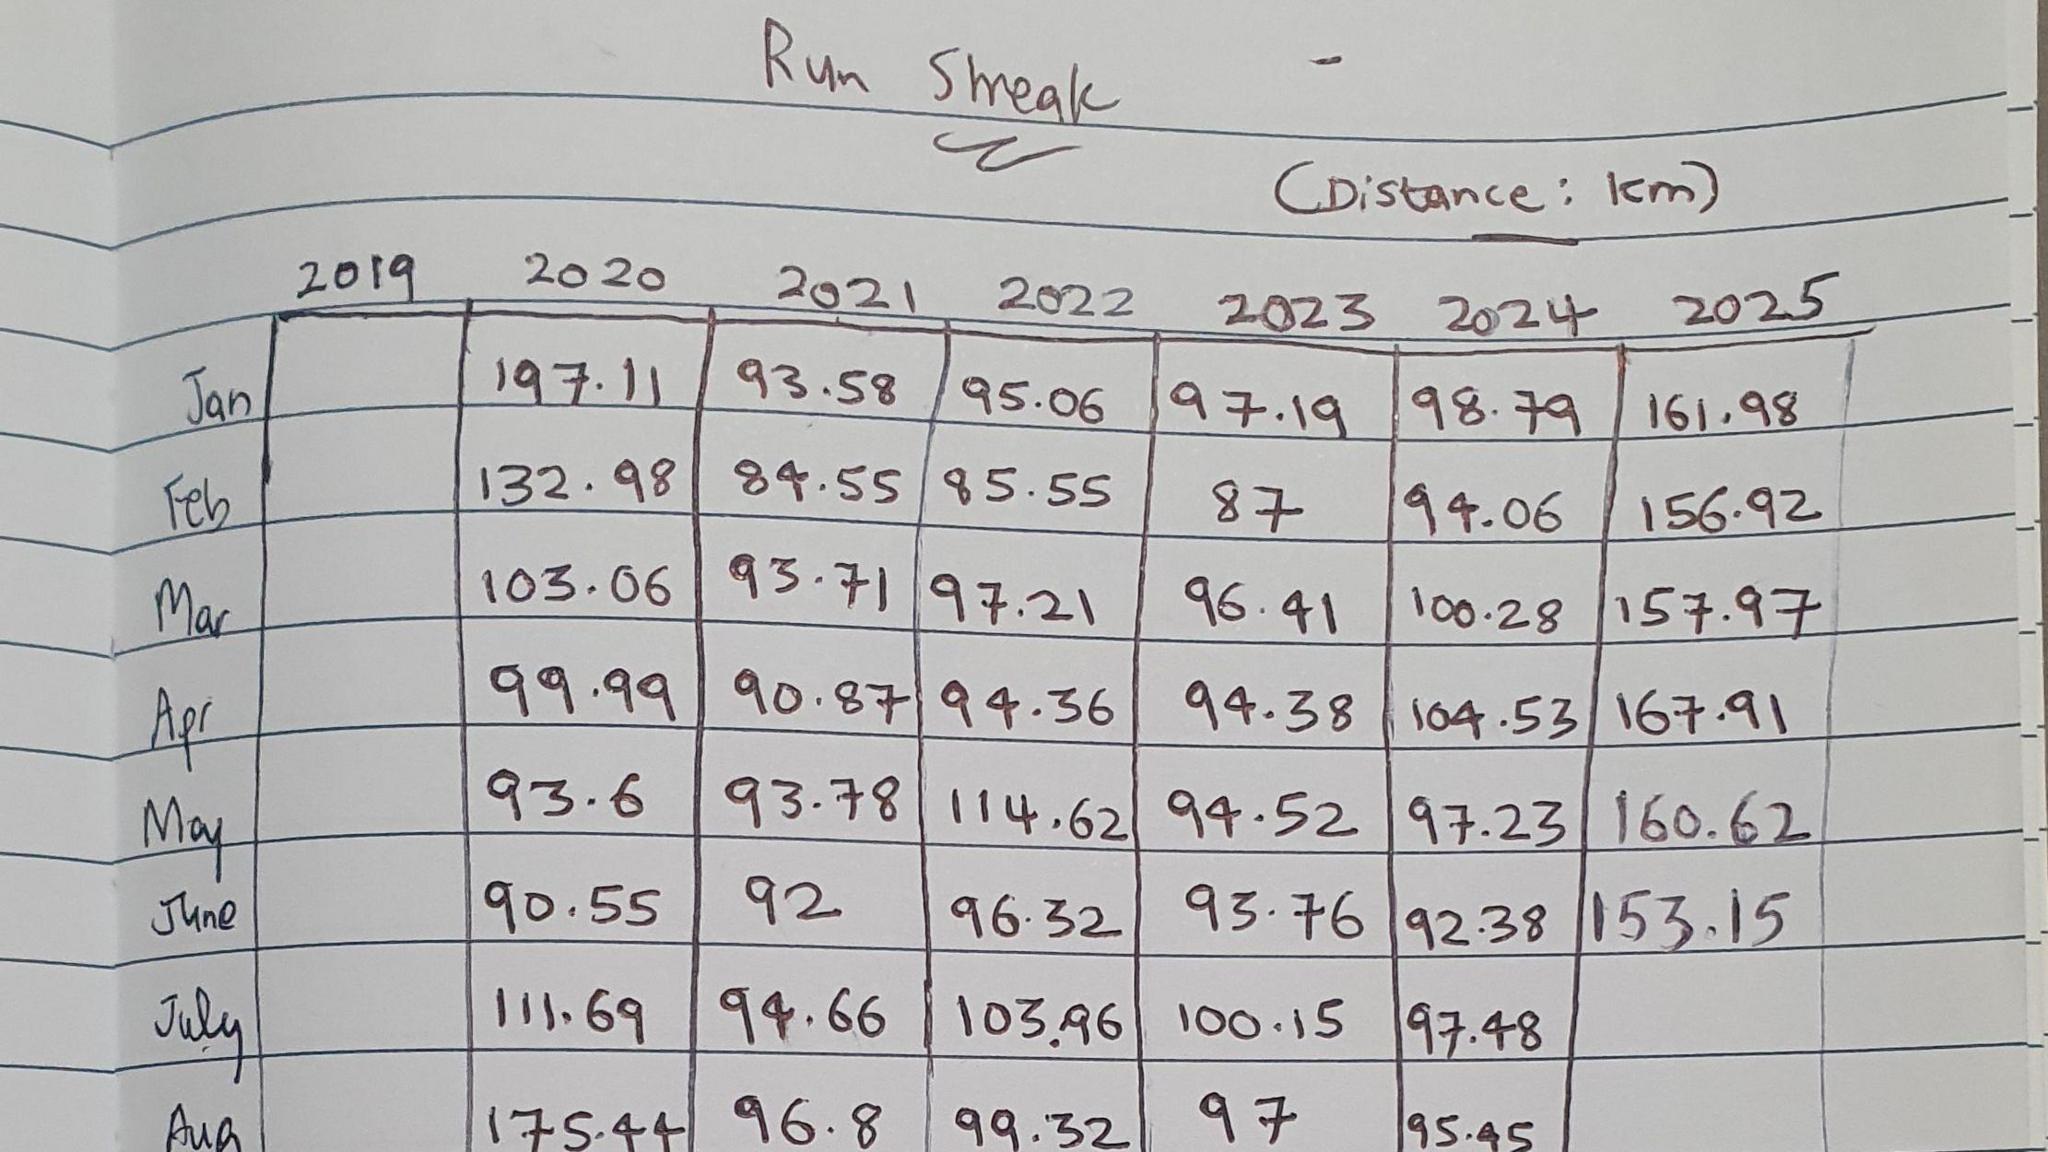 Run Streak -
(Distance: km)
2019 2020 2021 2022 2023 2024 2025
Jan 197.11 93.58 95.06 97.19 98.79 161.98
Feb 132.98 84.55 85.55 87 94.06 156.92
Mar 103.06 93.71 97.21 96.41 100.28 157.97
Apr 99.99 90.87 94.36 94.38 104.53 167.91
May 93.6 93.78 114.62 94.52 97.23 160.62
June 90.55 92 96.32 93.76 92.38 153.15
July 111.69 94.66 103.96 100.15 97.48
Aug 175.44 96.8 99.32 97 95.45